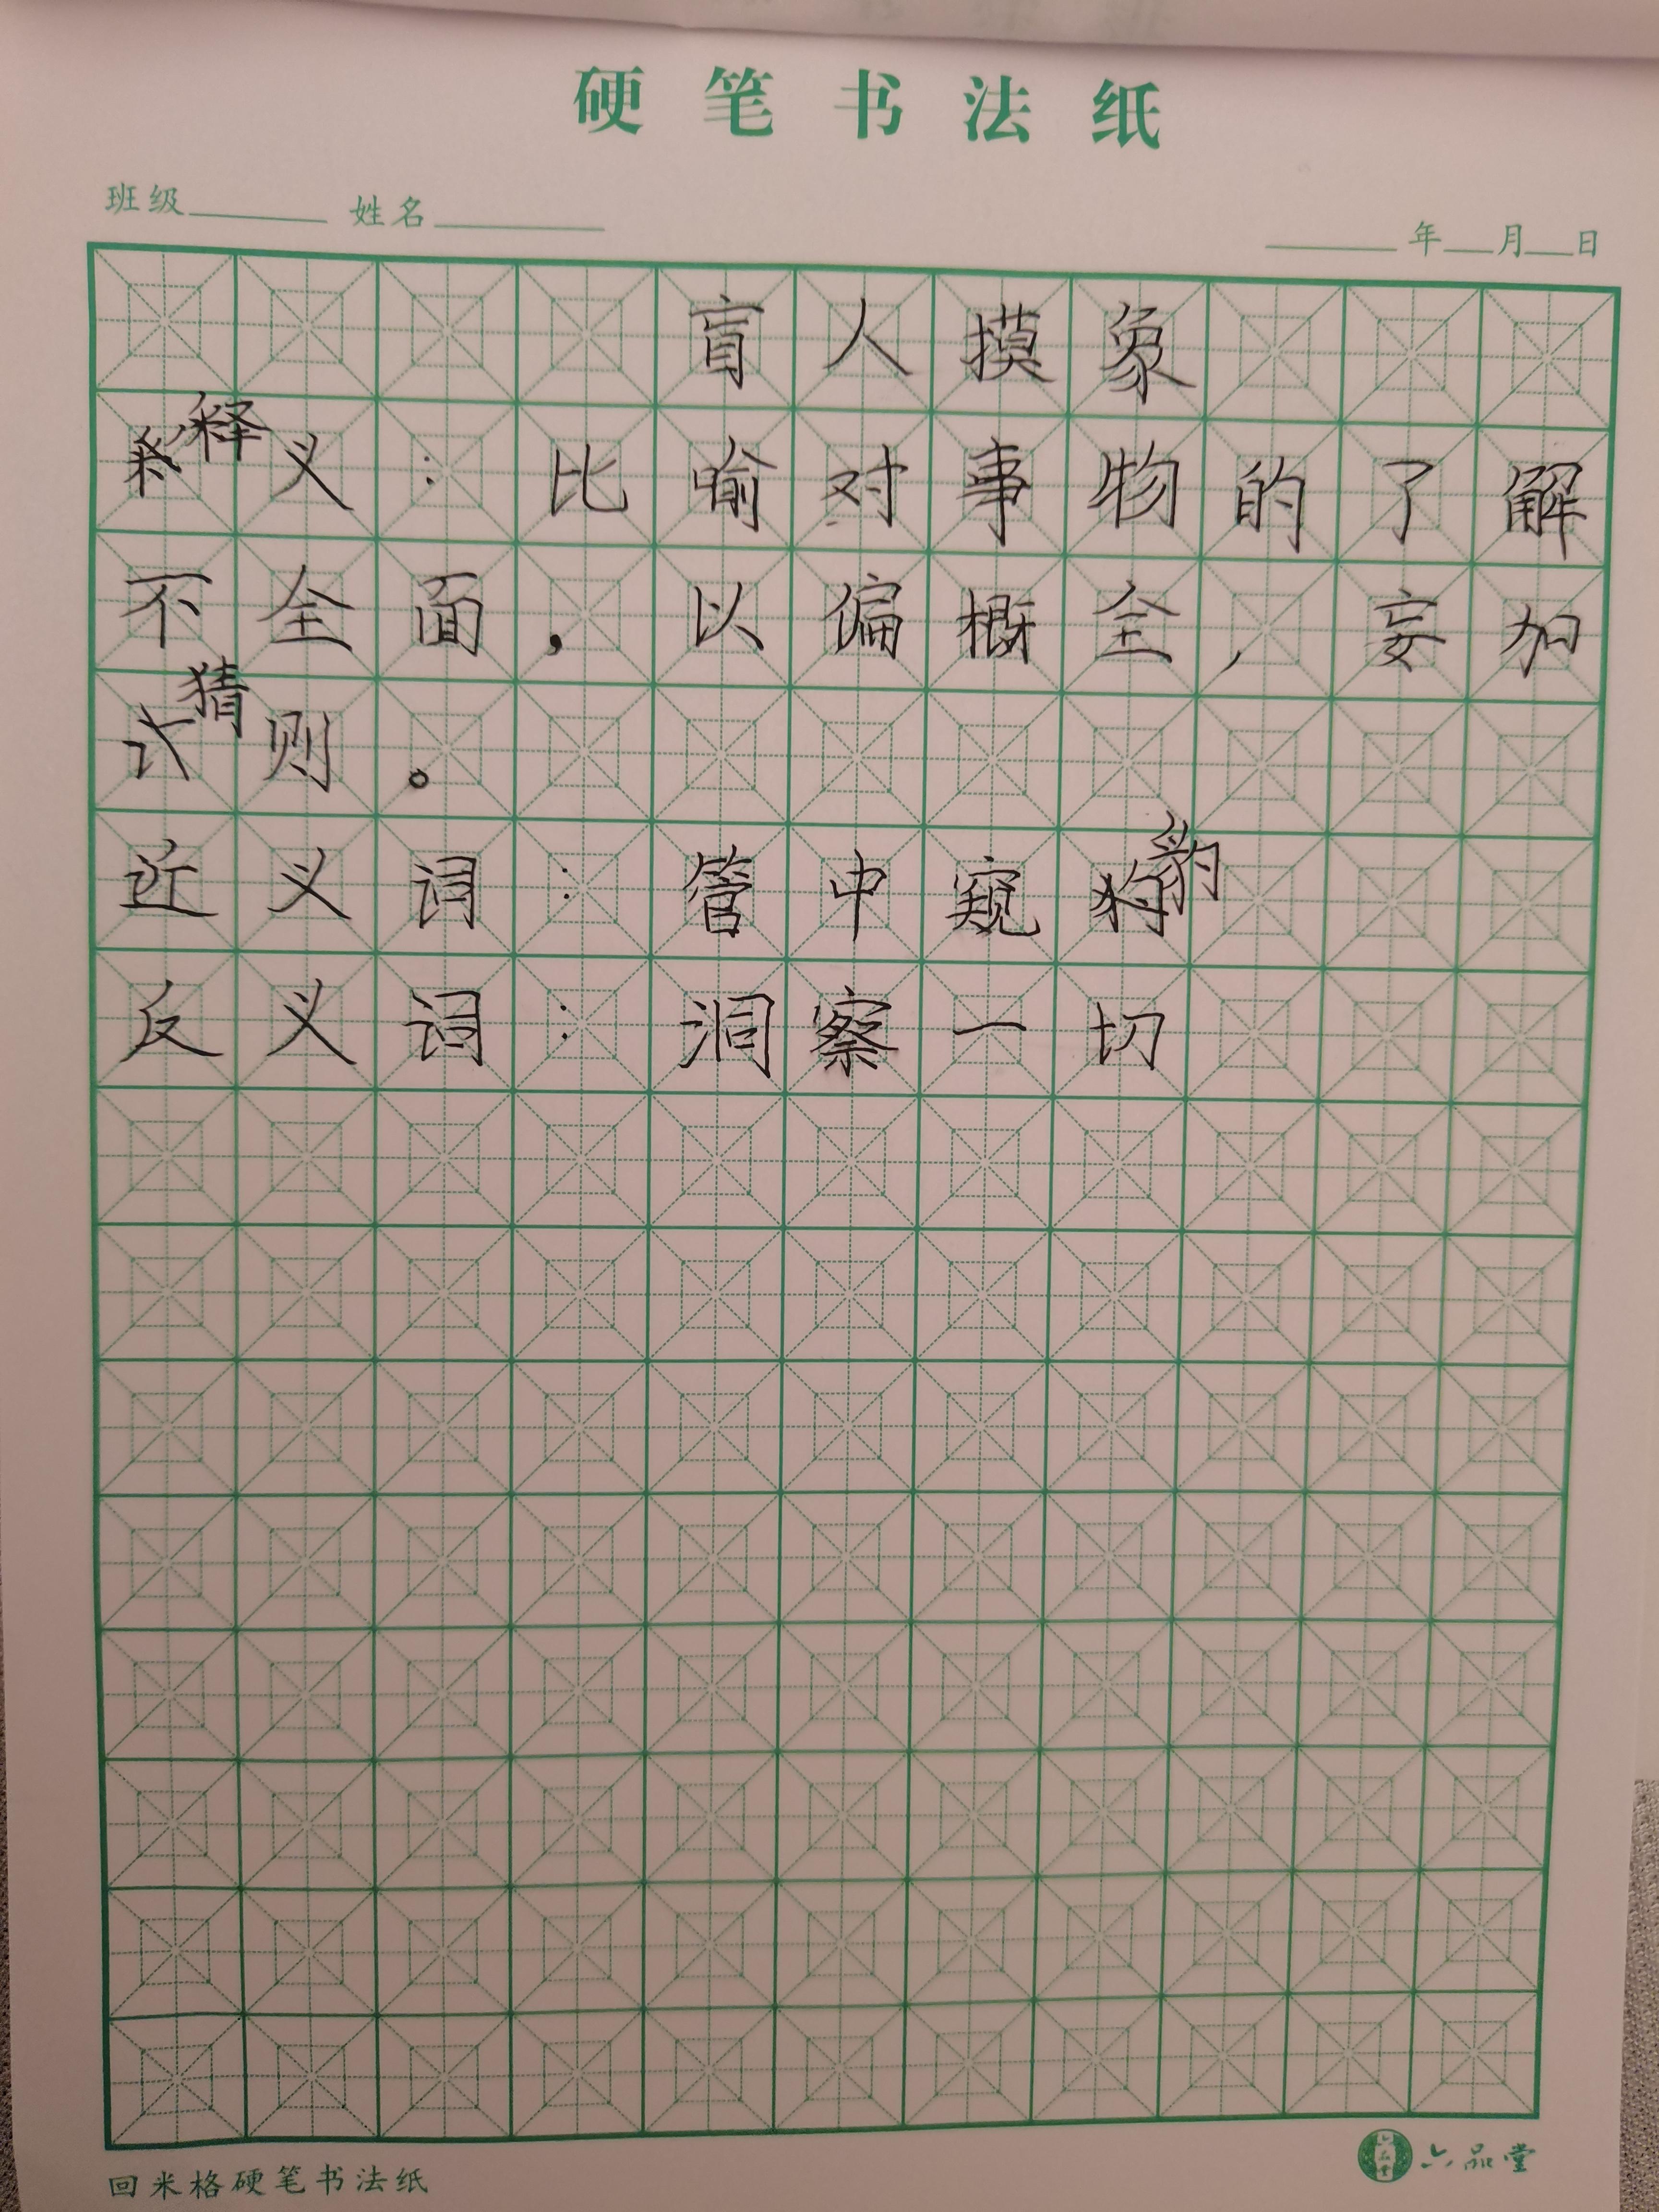 硬笔书法纸
班级 姓名 年 月 日
盲人摸象
释义：比喻对事物的了解
不全面，以偏概全，妄加
猜则。
近义词：管中窥豹
反义词：洞察一切
回米格硬笔书法纸
六品堂